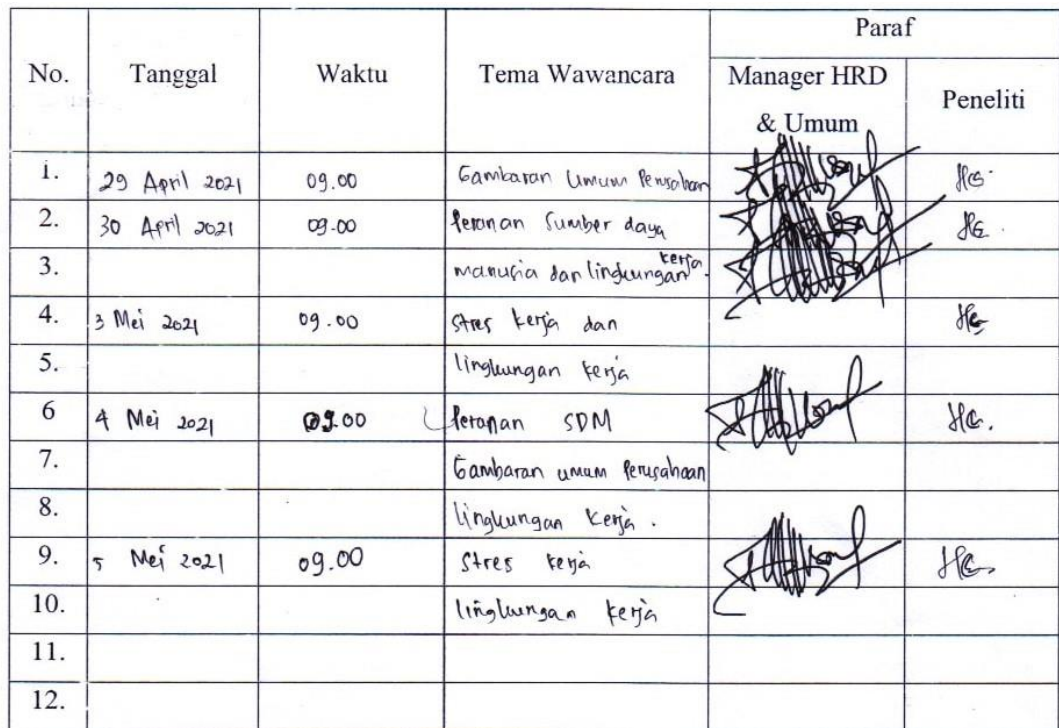 Paraf
No. Tanggal Waktu Tema Wawancara Manager HRD & Umum Peneliti
1. 29 April 2021 09.00 Gambaran Umum Perusahaan
2. 30 April 2021 09.00 Peranan Sumber daya
3. manusia dan lingkungan kerja.
4. 3 Mei 2021 09.00 Stres kerja dan
5. lingkungan kerja
6 4 Mei 2021 09.00 Peranan SDM
7. Gambaran umum Perusahaan
8. lingkungan kerja.
9. 5 Mei 2021 09.00 Stres kerja
10. lingkungan kerja
11.
12.